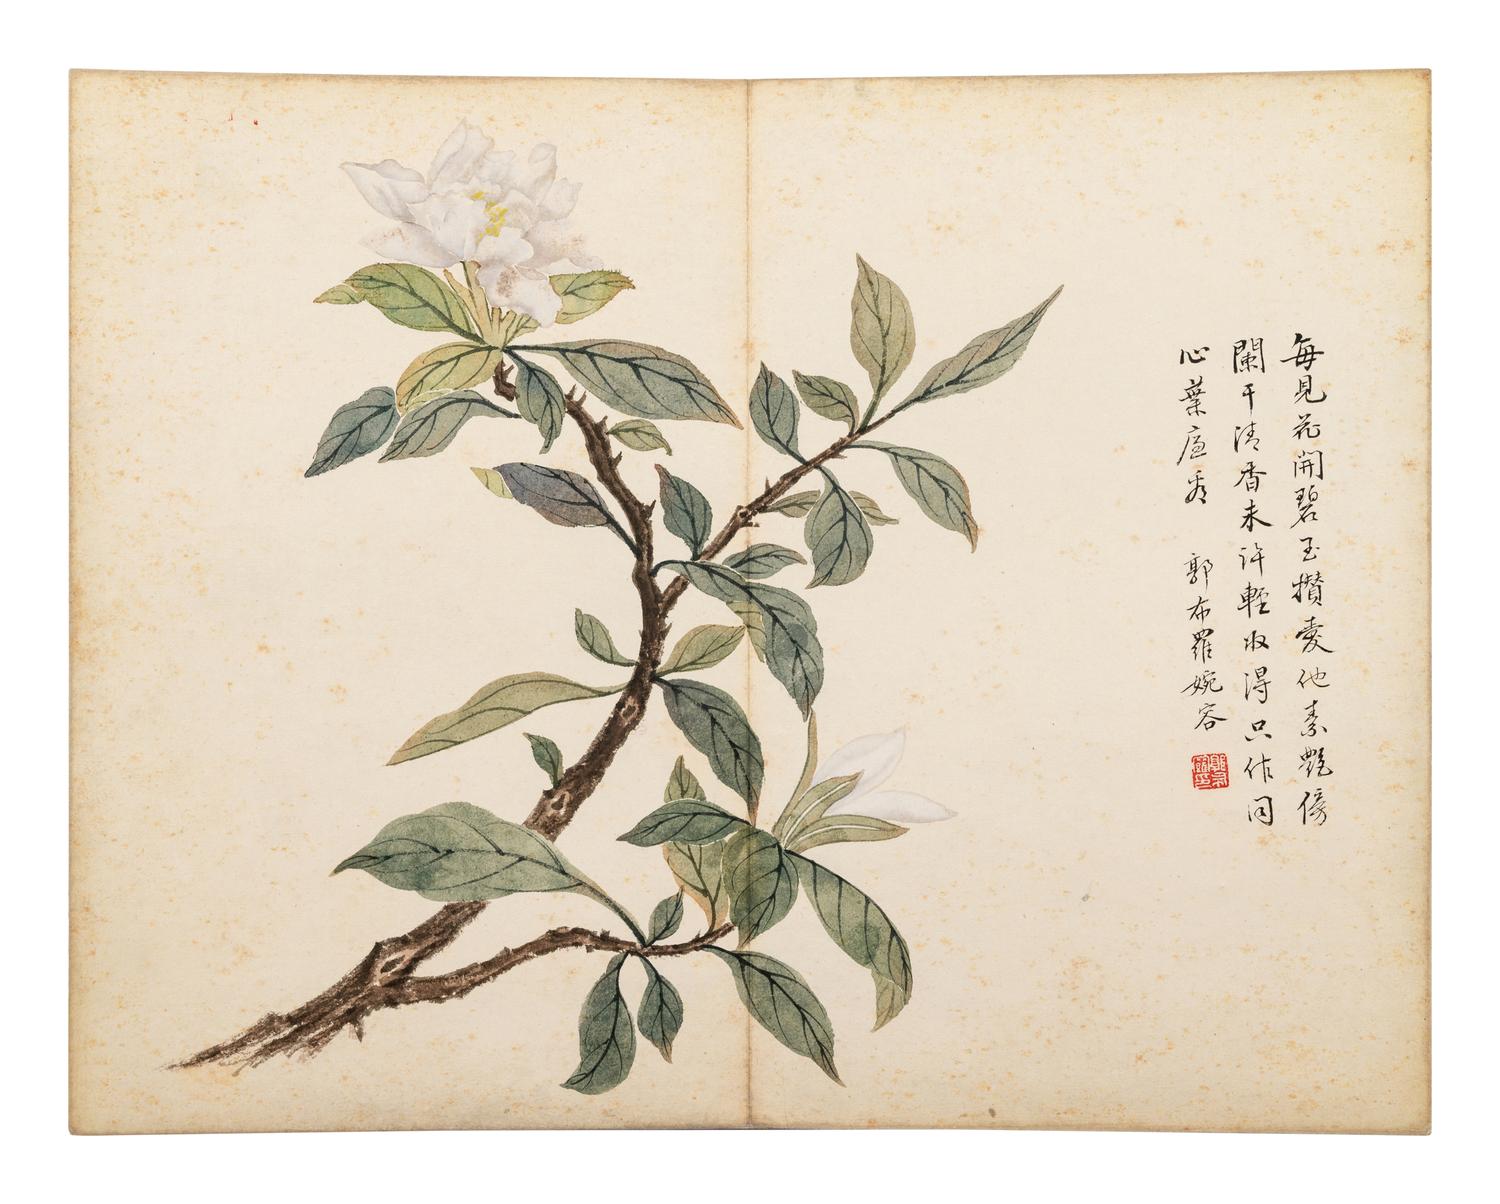 每見花開碧玉攢愛他素艷傍
闌干清香未許輕收得只作同
心葉底看 郭布羅婉容